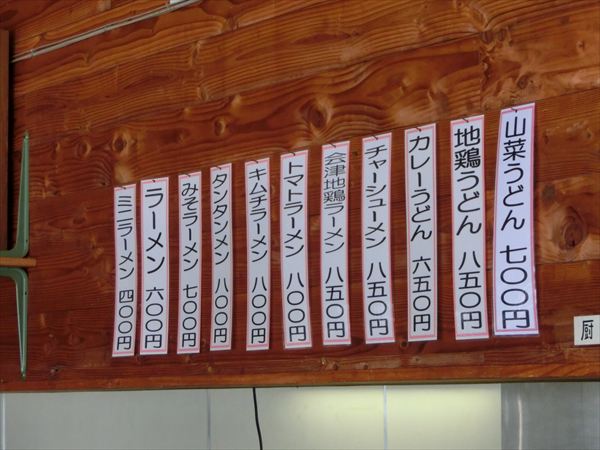 山菜うどん 七〇〇円
地鶏うどん 八五〇円
カレーうどん 六五〇円
チャーシューメン 八五〇円
会津地鶏ラーメン 八五〇円
トマトラーメン 八〇〇円
キムチラーメン 八〇〇円
タンタンメン 八〇〇円
みそラーメン 七〇〇円
ラーメン 六〇〇円
ミニラーメン 四〇〇円
厨